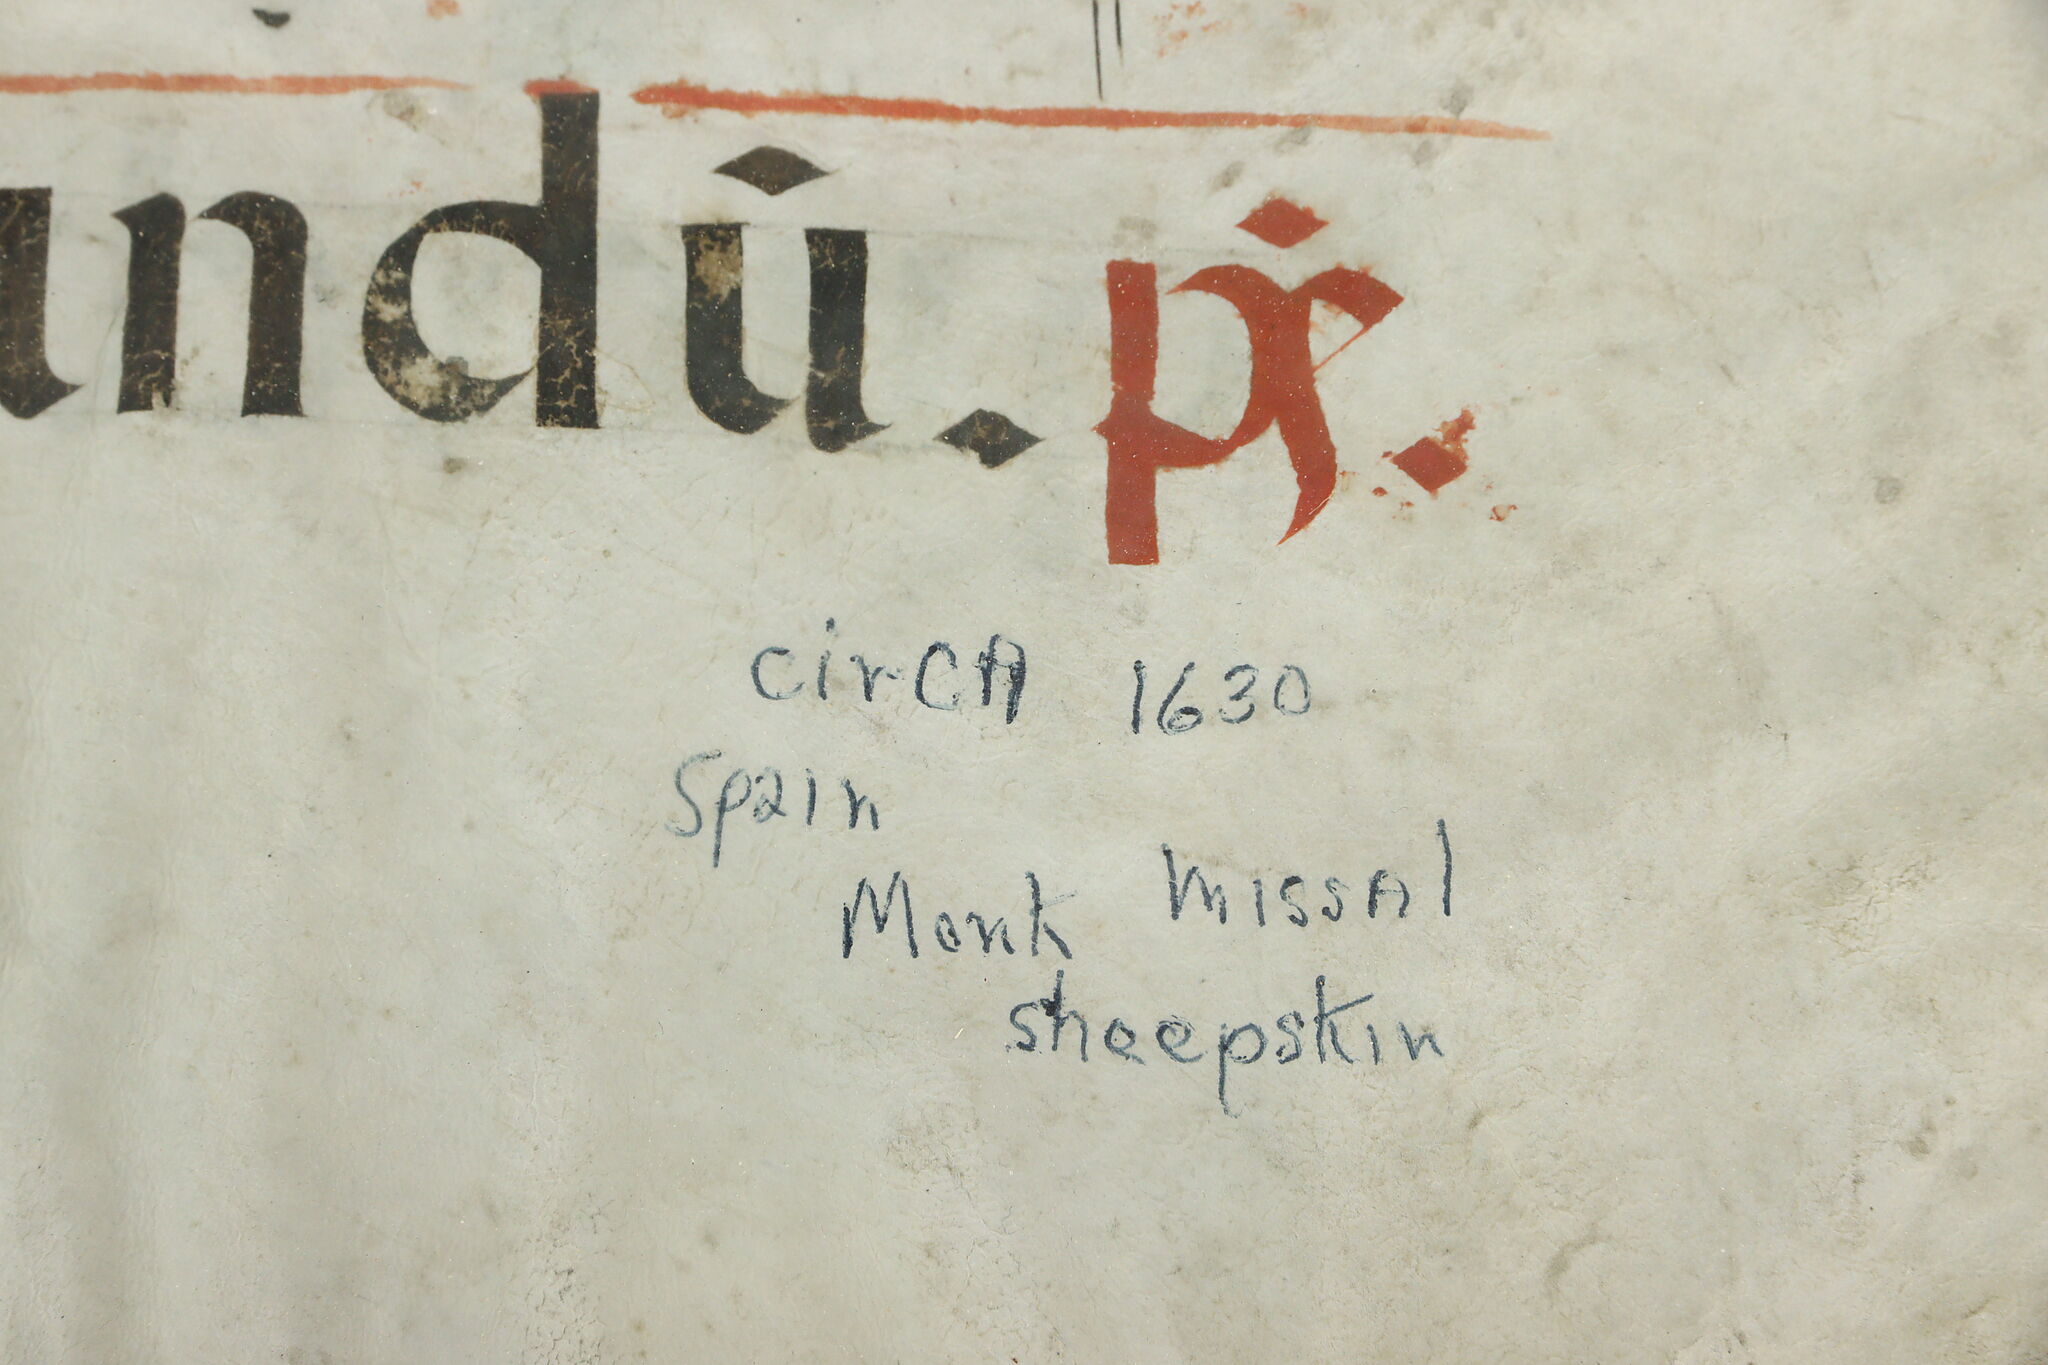 undū. pṡ.
circA 1630
Spain
Monk missAl
sheepskin